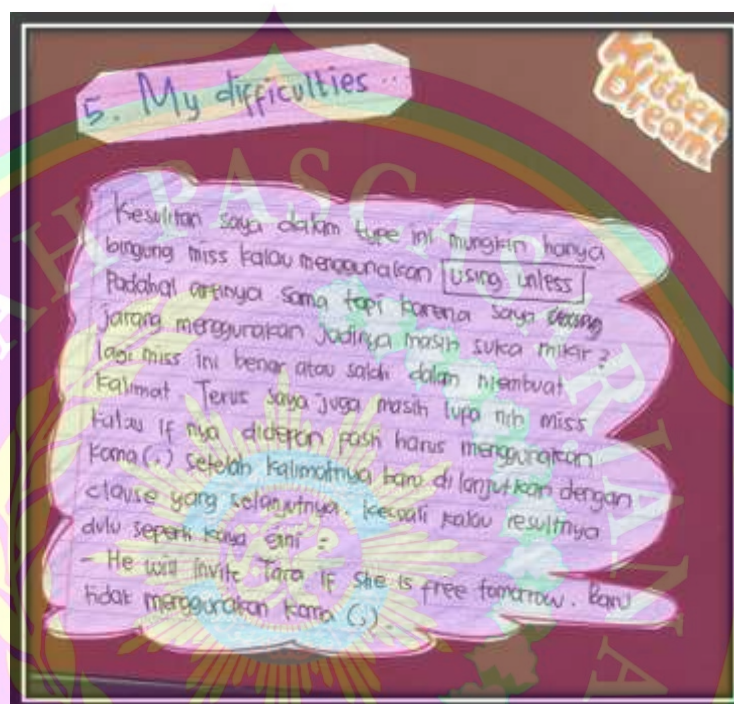 5. My difficulties...
Written
Dream
Kesulitan saya dalam type ini mungkin hanya
bingung miss kalau menggunakan using unless
Padahal artinya sama tapi karena saya
jarang menggunakan jadinya masih suka mikir2
lagi miss ini benar atau salah dalam membuat
kalimat. Terus saya juga masih lupa nih miss
kalau if nya didepan pasti harus menggunakan
koma (,) setelah kalimatnya baru di lanjutkan dengan
clause yang selanjutnya. kecuali kalau resultnya
dulu seperti kaya gini =
- He will invite Tara if she is free tomorrow. Baru
tidak menggunakan koma (,).
PASCASARJANA